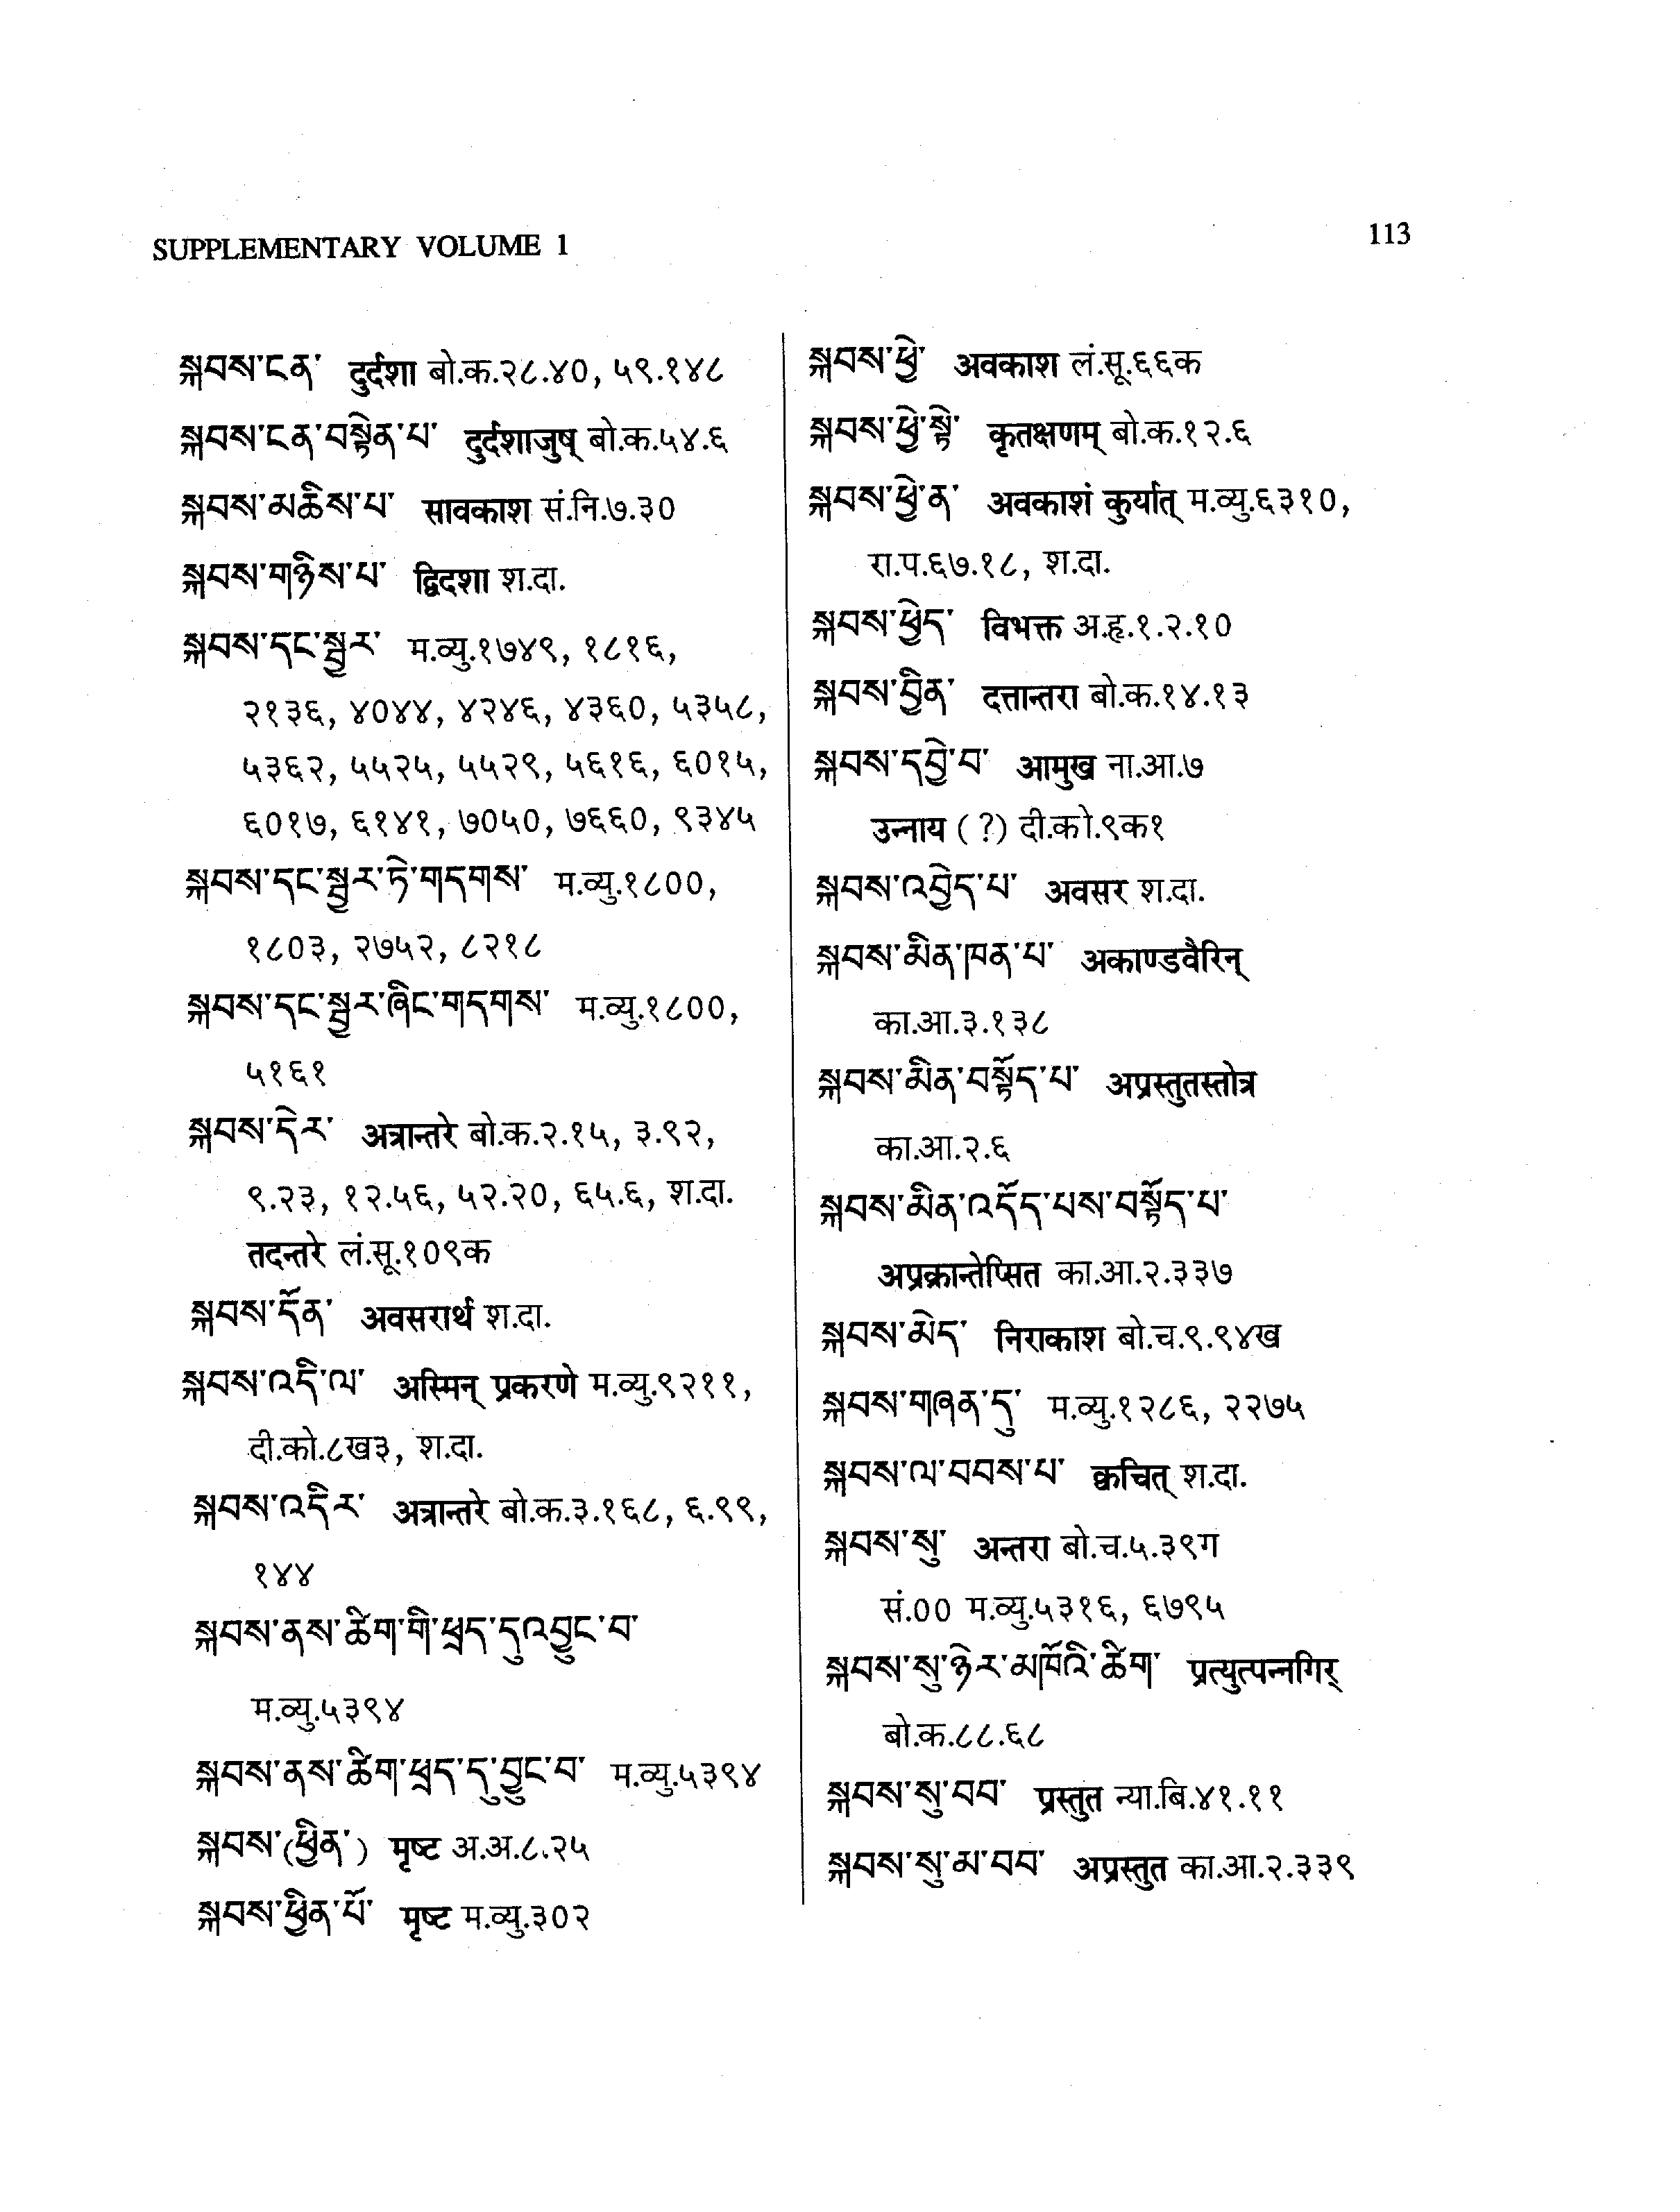 SUPPLEMENTARY VOLUME 1
113
སྐབས་ངན་ दुर्दशा बो.क.२८.४०, ५९.१४८
སྐབས་ངན་བསྟེན་པ་ दुर्दशाजुष् बो.क.५४.६
སྐབས་མཆིས་པ་ सावकाश सं.नि.७.३०
སྐབས་གཉིས་པ་ द्विदशा श.दा.
སྐབས་དང་སྦྱར་ म.व्यु.१७४९, १८१६,
२१३६, ४०४४, ४२४६, ४३६०, ५३५८,
५३६२, ५५२५, ५५२९, ५६१६, ६०१५,
६०१७, ६१४१, ७०५०, ७६६०, ९३४५
སྐབས་དང་སྦྱར་ཏེ་གདགས་ म.व्यु.१८००,
१८०३, २७५२, ८२१८
སྐབས་དང་སྦྱར་ཞིང་གདགས་ म.व्यु.१८००,
५१६१
སྐབས་དེར་ अत्रान्तरे बो.क.२.१५, ३.९२,
९.२३, १२.५६, ५२.२०, ६५.६, श.दा.
तदन्तरे लं.सू.१०९क
སྐབས་དོན་ अवसरार्थ श.दा.
སྐབས་འདི་ལ་ अस्मिन् प्रकरणे म.व्यु.९२११,
दी.को.८ख३, श.दा.
སྐབས་འདིར་ अत्रान्तरे बो.क.३.१६८, ६.९९,
१४४
སྐབས་ནས་ཚིག་གི་ཕྲད་དུའབྱུང་བ་
म.व्यु.५३९४
སྐབས་ནས་ཚིག་ཕྲད་དུ་བྱུང་བ་ म.व्यु.५३९४
སྐབས་(ཕྱིན་) मृष्ट अ.अ.८.२५
སྐབས་ཕྱིན་པོ་ मृष्ट म.व्यु.३०२
སྐབས་ཕྱེ་ अवकाश लं.सू.६६क
སྐབས་ཕྱེ་སྟེ་ कृतक्षणम् बो.क.१२.६
སྐབས་ཕྱེ་ན་ अवकाशं कुर्यात् म.व्यु.६३१०,
रा.प.६७.१८, श.दा.
སྐབས་ཕྱེད་ विभक्त अ.हृ.१.२.१०
སྐབས་བྱིན་ दत्तान्तरा बो.क.१४.१३
སྐབས་དབྱེ་བ་ आमुख ना.आ.७
उन्नाय (?) दी.को.९क१
སྐབས་འབྱེད་པ་ अवसर श.दा.
སྐབས་མིན་ཁན་པ་ अकाण्डवैरिन्
का.आ.३.१३८
སྐབས་མིན་བསྟོད་པ་ अप्रस्तुतस्तोत्र
का.आ.२.६
སྐབས་མིན་འདོད་པས་བསྟོད་པ་
अप्रक्रान्तेप्सित का.आ.२.३३७
སྐབས་མེད་ निराकाश बो.च.९.९४ख
སྐབས་གཞན་དུ་ म.व्यु.१२८६, २२७५
སྐབས་ལ་བབས་པ་ क्वचित् श.दा.
སྐབས་སུ་ अन्तरा बो.च.५.३९ग
सं.०० म.व्यु.५३१६, ६७९५
སྐབས་སུ་ཉེར་མཁོའི་ཚིག་ प्रत्युत्पन्नगिर्
बो.क.८८.६८
སྐབས་སུ་བབ་ प्रस्तुत न्या.बि.४१.११
སྐབས་སུ་མ་བབ་ अप्रस्तुत का.आ.२.३३९